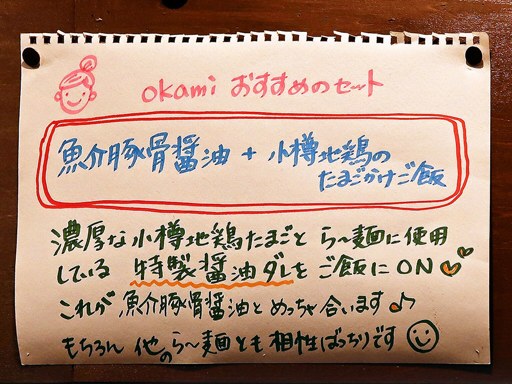 okami おすすめのセット
魚介豚骨醤油 + 小樽地鶏の
たまごかけご飯
濃厚な小樽地鶏たまごと ら～麺に使用
している 特製醤油ダレをご飯にON
これが 魚介豚骨醤油と めっちゃ合います♪
もちろん 他のら～麺とも 相性ばっちりです